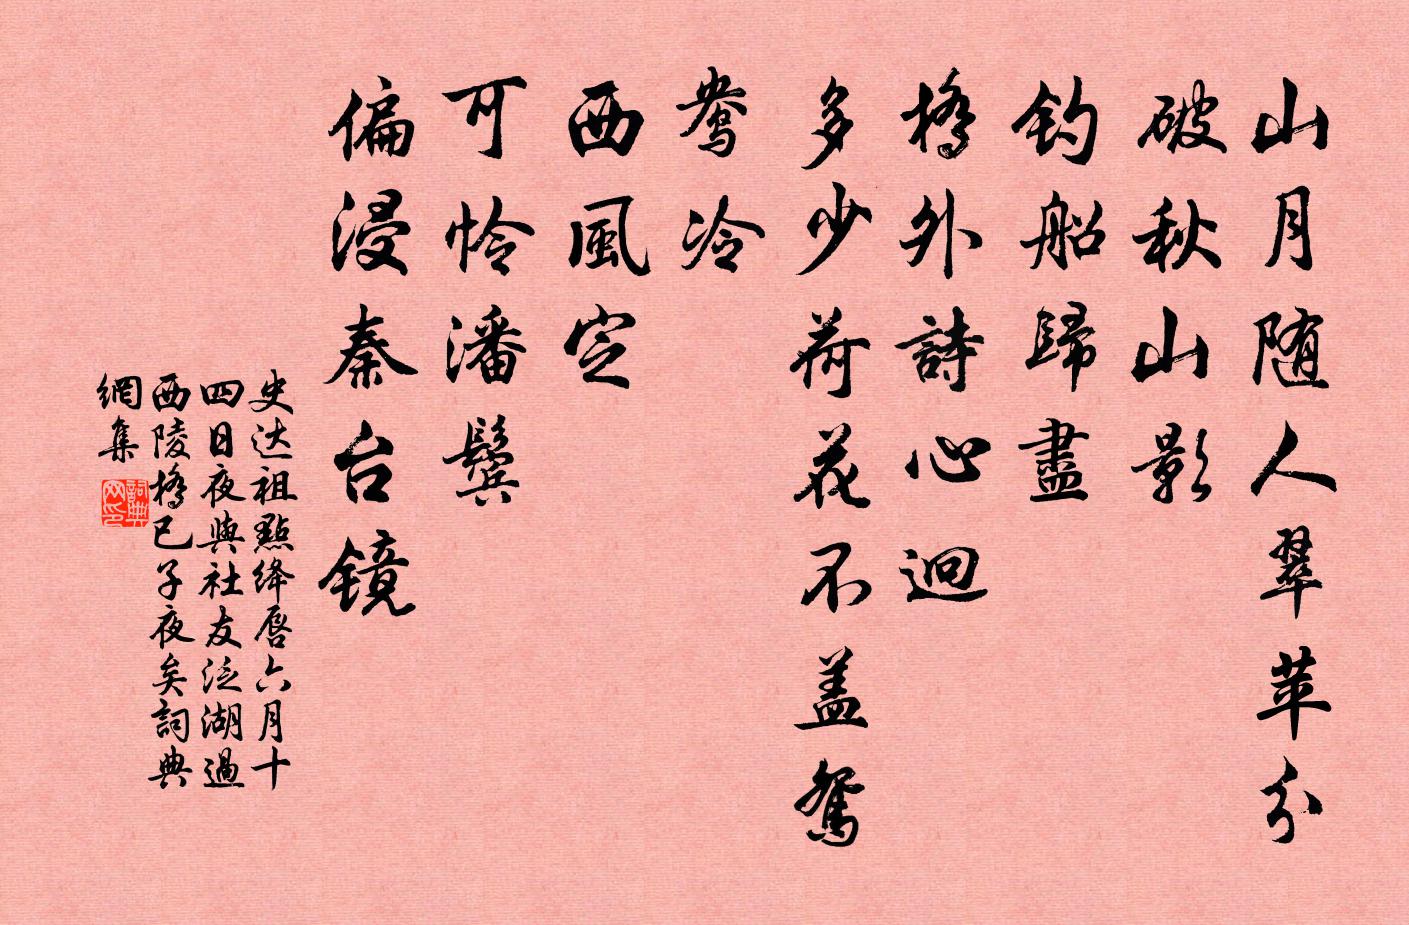 山月随人翠苹分
破秋山影
钓船歸盡
橋外詩心迥
多少荷花不盖鴛
鸯冷
西風定
可怜潘鬓
偏浸秦台镜
史达祖點绛唇六月十
四日夜與社友泛湖過
西陵橋已子夜矣詞典
網集
詞典网印